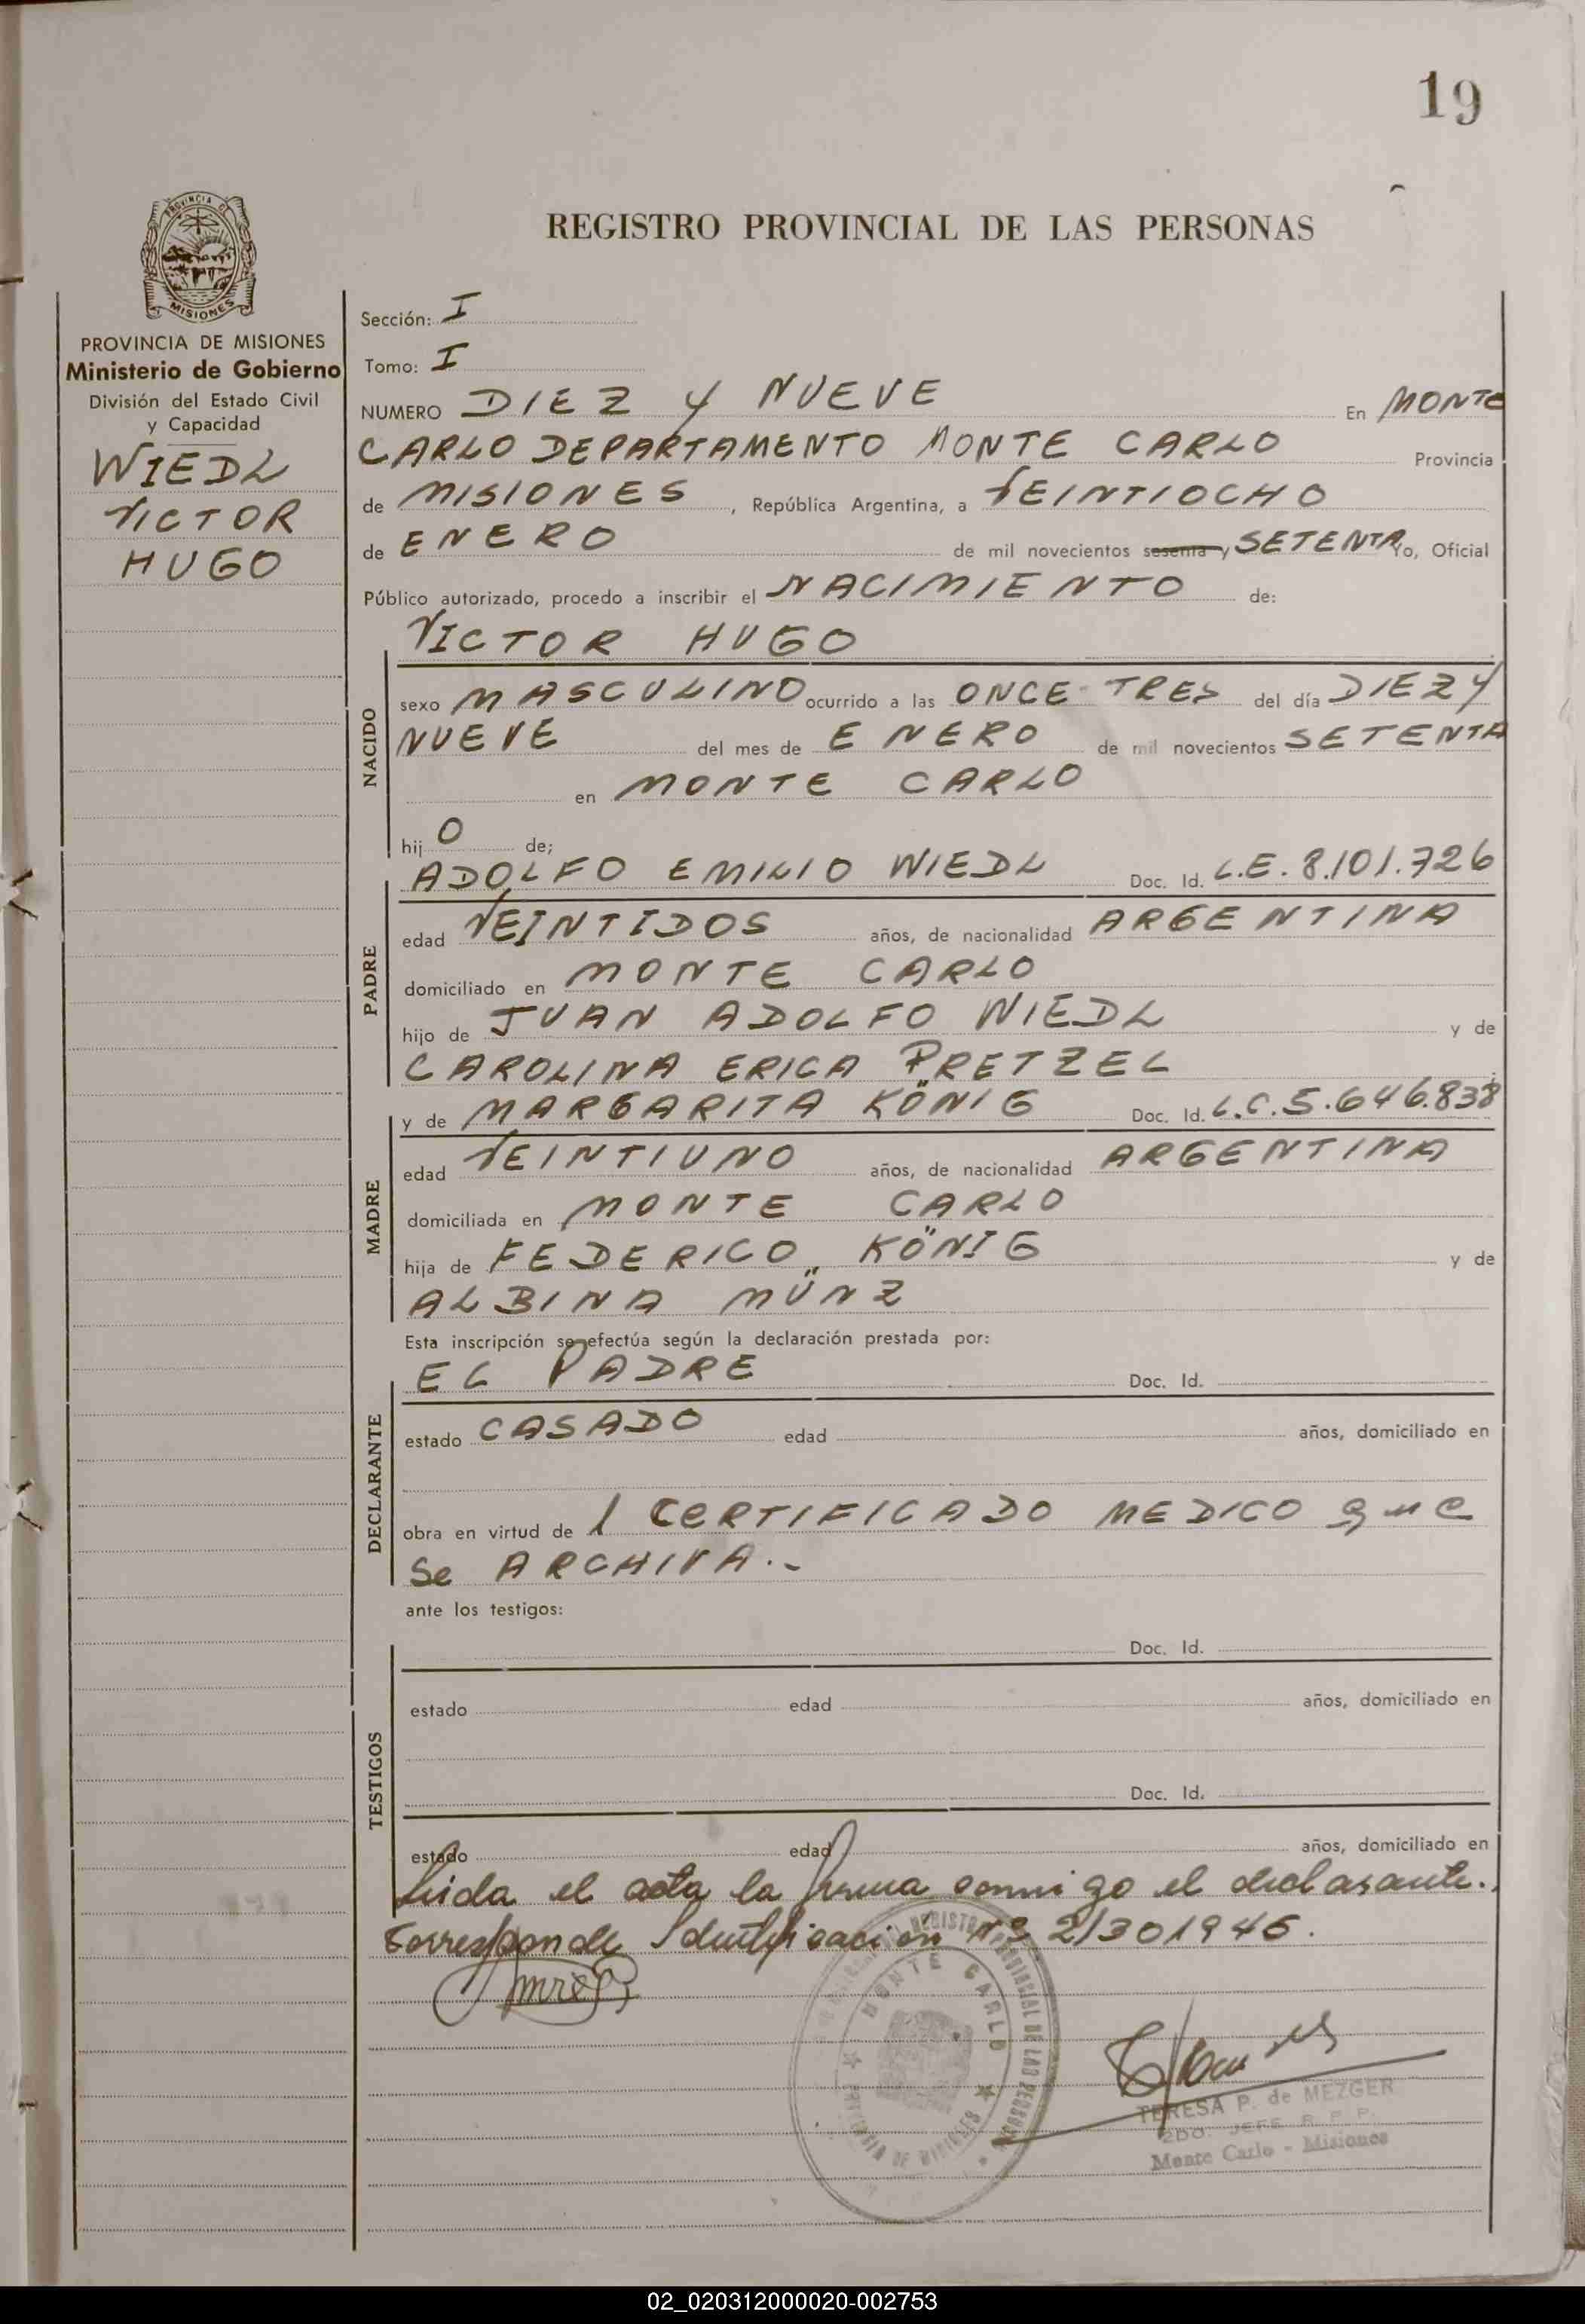 19
REGISTRO PROVINCIAL DE LAS PERSONAS
PROVINCIA DE
MISIONES
PROVINCIA DE MISIONES
Ministerio de Gobierno
División del Estado Civil
y Capacidad
WIEDL
VICTOR
HUGO
Sección: I
Tomo: I
NUMERO DIEZ Y NUEVE En MONTE
CARLO DEPARTAMENTO MONTE CARLO Provincia
de MISIONES, República Argentina, a VEINTIOCHO
de ENERO de mil novecientos sesenta y SETENTA Yo, Oficial
Público autorizado, procedo a inscribir el NACIMIENTO de:
VICTOR HUGO
NACIDO
sexo MASCULINO ocurrido a las ONCE TRES del día DIEZ Y
NUEVE del mes de ENERO de mil novecientos SETENTA
en MONTE CARLO
hij O de;
ADOLFO EMILIO WIEDL Doc. Id. L.E. 8.101.726
PADRE
edad VEINTIDOS años, de nacionalidad ARGENTINA
domiciliado en MONTE CARLO
hijo de JUAN ADOLFO WIEDL y de
CAROLINA ERICA PRETZEL
y de MARGARITA KÖNIG Doc. Id. L.C. 5.646.838
MADRE
edad VEINTIUNO años, de nacionalidad ARGENTINA
domiciliada en MONTE CARLO
hija de FEDERICO KÖNIG y de
ALBINA MÜNZ
Esta inscripción se efectúa según la declaración prestada por:
EL PADRE Doc. Id.
DECLARANTE
estado CASADO edad años, domiciliado en
obra en virtud de 1 CERTIFICADO MEDICO que
Se ARCHIVA.-
ante los testigos:
Doc. Id.
TESTIGOS
estado edad años, domiciliado en
Doc. Id.
estado edad años, domiciliado en
Leida el acta la firma conmigo el declarante.
Corresponde Identificación Nº 21301946.
MONTE CARLO
PROVINCIA DE MISIONES
TERESA P. de MEZGER
2DO. JEFE R. P. P.
Monte Carlo - Misiones
02_020312000020-002753